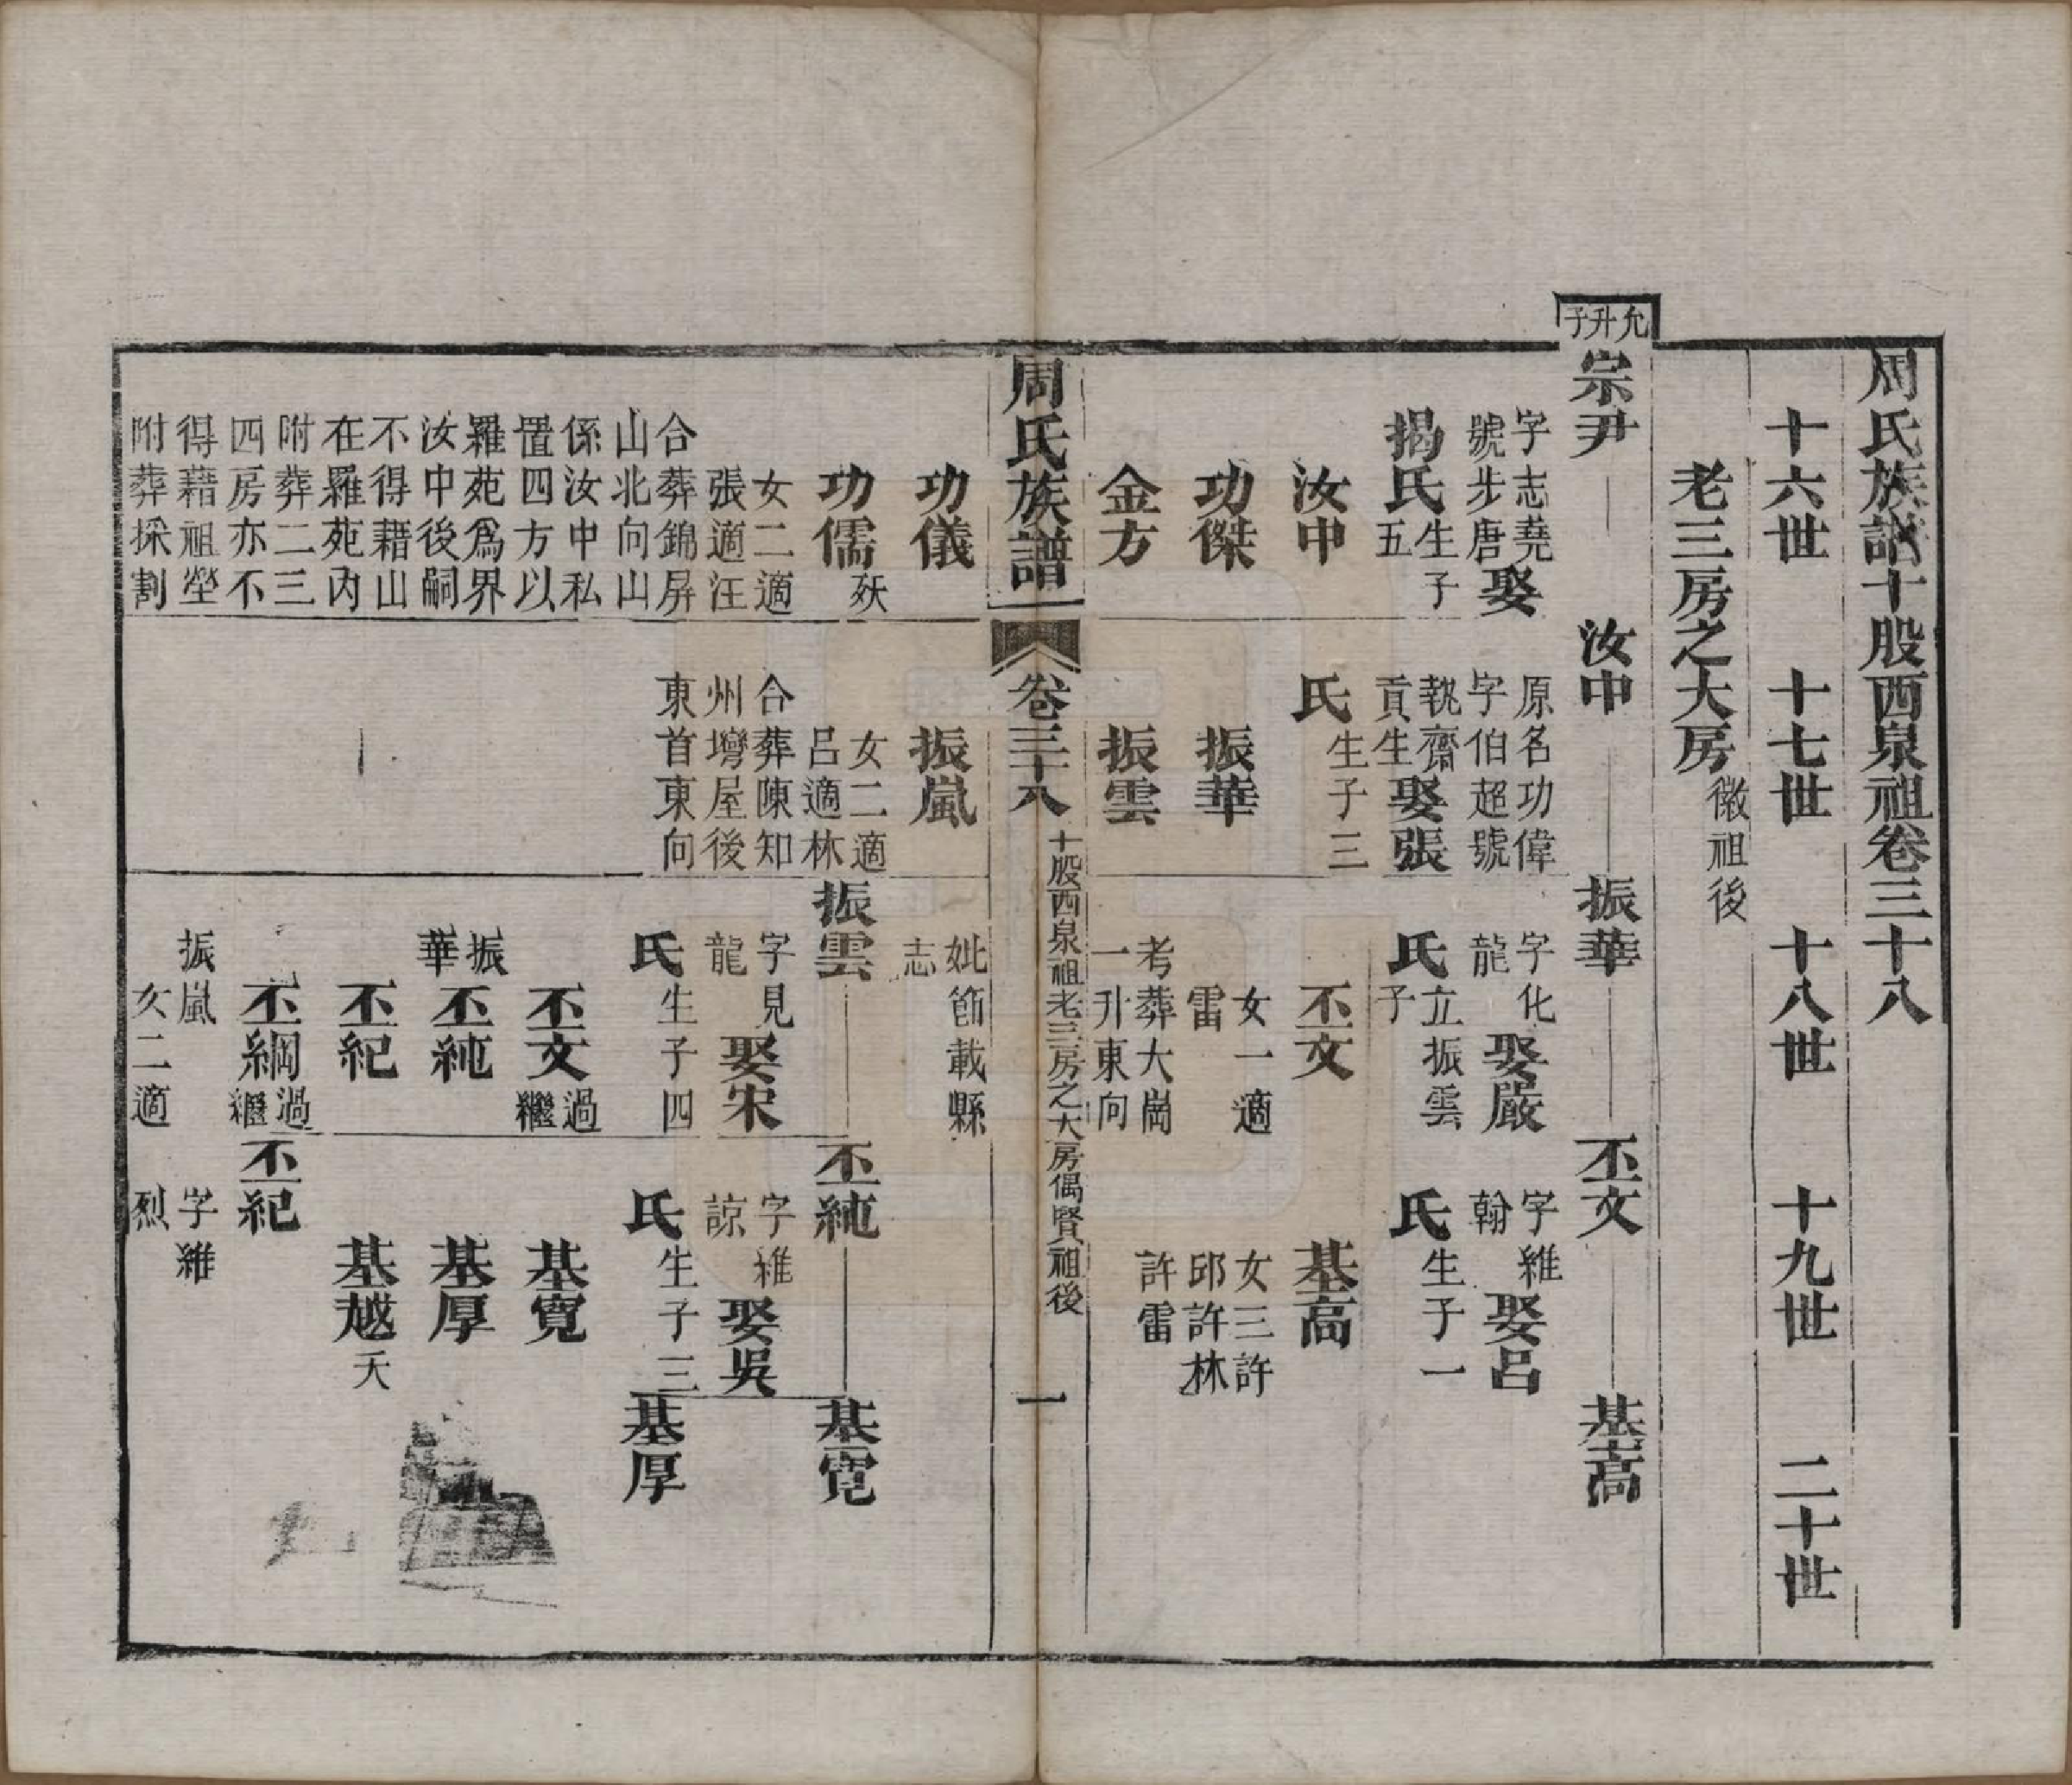 周氏族譜十股西泉祖卷三十八
十六世　十七世　十八世　十九世　二十世
老三房之大房徽祖後
允升子
宗尹　汝中　振華　丕文　基高
字志堯
號步唐娶
揭氏生子
五
汝中
功傑
金方
原名功偉
字伯超號
執齋娶張
貢生
氏生子三
振華
振雲
字化
龍　娶嚴
氏立振雲
子
丕文
女一適
雷
考葬大崗
一升東向
字維
翰　娶呂
氏生子一
基高
女三許
邱許林
許雷
周氏族譜
卷三十八
十股西泉祖老三房之大房偶賢祖後
一
功儀
功儒　殀
女二適
張適汪
合葬錦屏
山北向山
係汝中私
置四方以
羅苑為界
汝中後嗣
不得藉山
在羅苑內
附葬二三
四房亦不
得藉祖塋
附葬採割
振嵐
女二適
呂適林
合葬陳知
州壪屋後
東首東向
妣節載縣
志
振雲　丕純　基寬
字見
龍　娶宋
氏生子四
丕文過繼
振華
丕純
丕紀
丕綱過繼
振嵐
女二適
字維
諒　娶吳
氏生子三
基寬
基厚
基越夭
基厚
丕紀
字維
烈